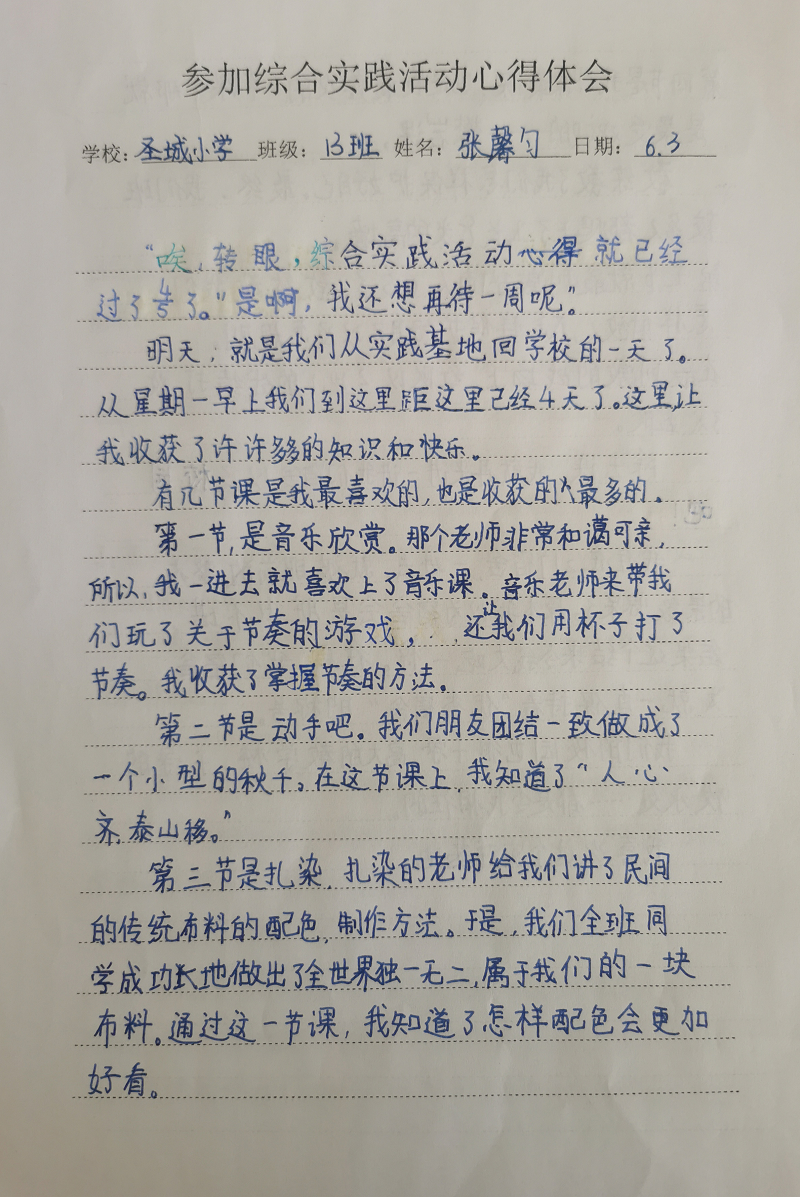 参加综合实践活动心得体会
学校：圣城小学 班级：13班 姓名：张馨匀 日期：6.3
“唉，转眼，综合实践活动心得就已经
过了4了。”是啊，我还想再待一周呢”。
明天，就是我们从实践基地回学校的一天了。
从星期一早上我们到这里距这里已经4天了。这里，让
我收获了许许多多的知识和快乐。
有几节课是我最喜欢的，也是收获的最多的。
第一节，是音乐欣赏。那个老师非常和蔼可亲，
所以，我一进去就喜欢上了音乐课。音乐老师来带我
们玩了关于节奏的游戏，还让我们用杯子打了
节奏。我收获了掌握节奏的方法。
第二节是动手吧。我们朋友团结一致做成了
一个小型的秋千。在这节课上，我知道了“人心
齐，泰山移。”
第三节是扎染，扎染的老师给我们讲了民间
的传统布料的配色，制作方法。于是，我们全班同
学成功地做出了全世界独一无二，属于我们的一块
布料。通过这一节课，我知道了怎样配色会更加
好看。